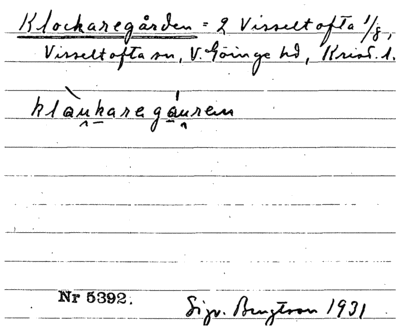 Klockaregården = 2 Visseltofta 1/8,
Visseltofta sn, V. Göinge hd, Krist. l.
klàu̯karegáu̯ren
Nr 5392.
Sigv. Bengtson 1931